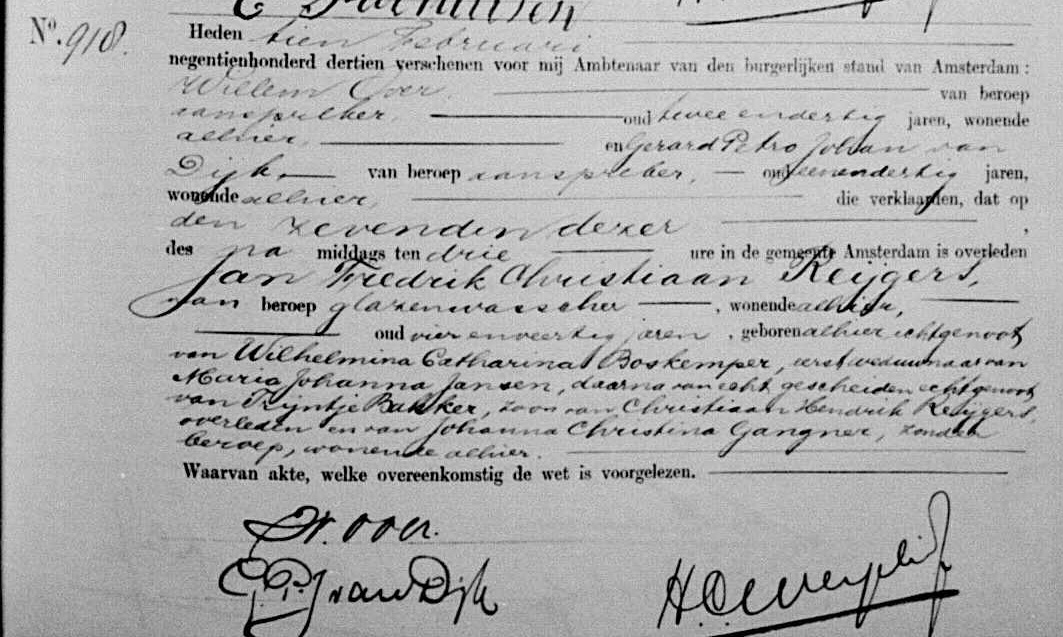 Nº. 918.
Heden tien Februari
negentienhonderd dertien verschenen voor mij Ambtenaar van den burgerlijken stand van Amsterdam :
Willem Over, van beroep
aanspreker, oud twee endertig jaren, wonende
alhier, en Gerard Petro Johan van
Dijk, van beroep aanspreker, oud eenendertig jaren,
wonende alhier, die verklaarden, dat op
den zevenden dezer ,
des na middags ten drie ure in de gemeente Amsterdam is overleden
Jan Fredrik Christiaan Reijgers,
van beroep glazenwasscher , wonende alhier,
oud vier enveertig jaren , geboren alhier echtgenoot
van Wilhelmina Catharina Boskemper, eerst weduwnaar van
Maria Johanna Jansen, daarna van echt gescheiden echtgenoot
van Trijntje Bakker, zoon van Christiaan Hendrik Reijgers,
overleden en van Johanna Christina Gangner, zonder
beroep, wonende alhier.
Waarvan akte, welke overeenkomstig de wet is voorgelezen.
W. Over.
G. P. J. van Dijk